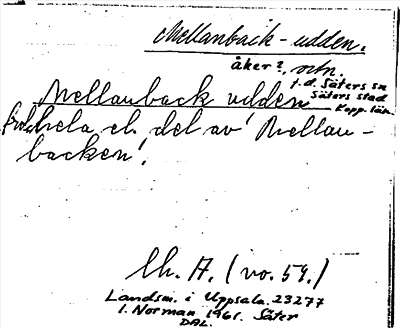 Mellanback-udden.
åker?, ortn.
t.d. Säters sn
Säters stad
Kopp. län.
Mellanback udden
hela el. del av Mellan-
backen!
lh. A. (vo. 59.)
Landsm. i Uppsala. 23277
I. Norman 1961. Säter
DAL.